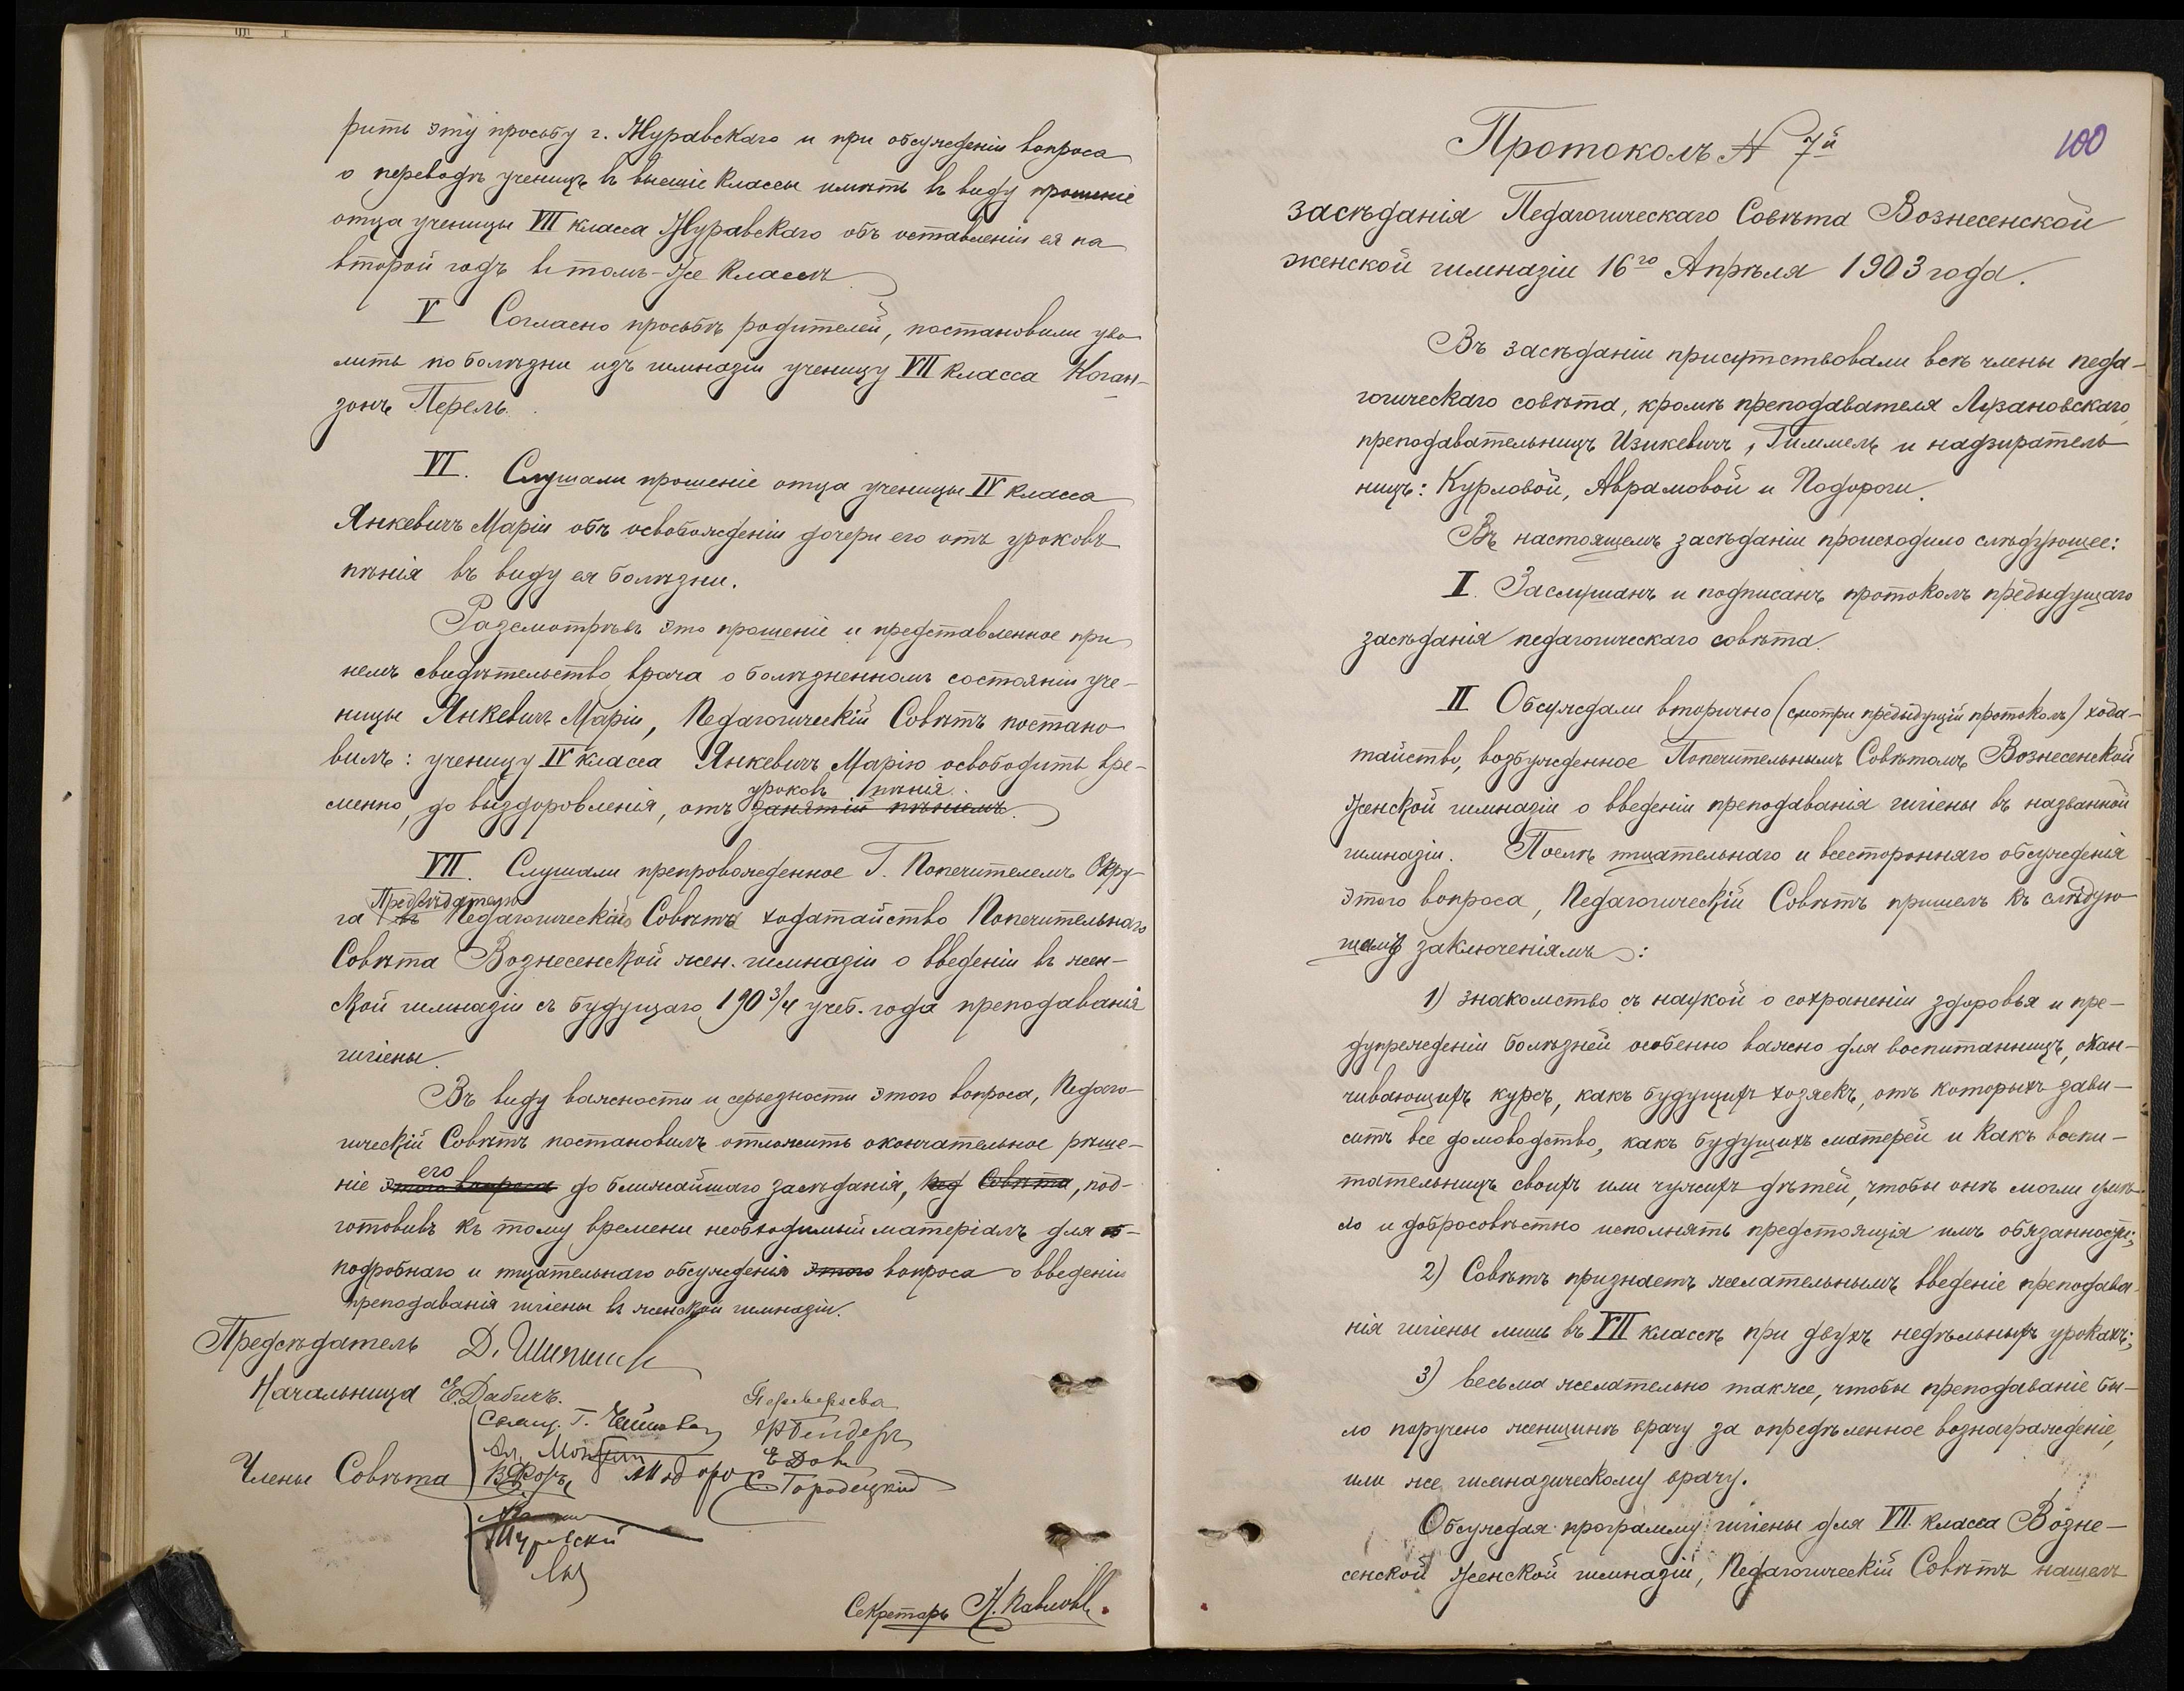 рить эту просьбу г. Журавскаго и при обсужденіи вопроса
о переводѣ ученицъ въ высшіе классы имѣть въ виду прошеніе
отца ученицы VII класса Журавскаго объ оставленіи ея на
второй годъ въ томъ-же классѣ.
V Согласно просьбѣ родителей, постановили уво
лить по болѣзни изъ гимназіи ученицу VII класса Коган-
зонъ Перель.
VI. Слушали прошеніе отца ученицы IV класса
Янкевичъ Маріи объ освобожденіи дочери его отъ уроковъ
пѣнія въ виду ея болѣзни.
Разсмотрѣвъ это прошеніе и представленное при
немъ свидѣтельство врача о болѣзненномъ состояніи уче-
ницы Янкевичъ Маріи, Педагогическій Совѣтъ постано
вилъ: ученицу IV класса Янкевичъ Марію освободить вре-
уроковъ пѣнія.
менно, до выздоровленія, отъ занятій пѣніемъ.
VII. Слушали препровожденное Г. Попечителемъ Окру-
Предсѣдателю
га въ Педагогическій Совѣта ходатайство Попечительнаго
Совѣта Вознесенской жен. гимназіи о введеніи въ жен-
ской гимназіи съ будущаго 1903/4 учеб. года преподаванія
гигіены.
Въ виду важности и серьезности этого вопроса, Педаго-
гическій Совѣтъ постановилъ отложить окончательное рѣше-
его
ніе этого вопроса до ближайшаго засѣданія, пед Совѣта, под-
готовивъ къ тому времени необходимый матеріалъ для об-
подробнаго и тщательнаго обсужденія этого вопроса о введеніи
преподаванія гигіены въ женской гимназіи.
Предсѣдатель Д.
Начальница Е. Дабичъ.
Переверзева
Свящ. Г.
Е Дов
Члены Совѣта
С. Городецкій
Журавскій
Секретарь Н. Павлов
100
Протоколъ № 7й
засѣданія Педагогическаго Совѣта Вознесенской
женской гимназіи 16го Апрѣля 1903 года.
Въ засѣданіи присутствовали всѣ члены педа-
гогическаго совѣта, кромѣ преподавателя Лузановскаго,
преподавательницъ Изикевичъ, Гиммель и надзиратель
ницъ: Курловой, Аврамовой и Подороги.
Въ настоящемъ засѣданіи происходило слѣдующее:
I. Заслушанъ и подписанъ протоколъ предыдущаго
засѣданія педагогическаго совѣта.
II Обсуждали вторично (смотри предыдущій протоколъ) хода-
тайство, возбужденное Попечительнымъ Совѣтомъ Вознесенской
женской гимназіи о введеніи преподаванія гигіены въ названной
гимназіи. Послѣ тщательнаго и всесторонняго обсужденія
этого вопроса, Педагогическій Совѣтъ пришелъ къ слѣдую
щимъ заключеніямъ:
1) знакомство съ наукой о сохраненіи здоровья и пре-
дупрежденіи болѣзней особенно важно для воспитанницъ, окан-
чивающихъ курсъ, какъ будущихъ хозяекъ, отъ которыхъ зави-
ситъ все домоводство, какъ будущихъ матерей и какъ воспи-
тательницъ своихъ или чужихъ дѣтей, чтобы онѣ могли умѣ-
ло и добросовѣстно исполнять предстоящія имъ обязанности;
2) Совѣтъ признаетъ желательнымъ введеніе преподава-
нія гигіены лишь въ VII классѣ при двухъ недѣльныхъ урокахъ;
3) весьма желательно также, чтобы преподаваніе бы-
ло поручено женщинѣ врачу за опредѣленное вознагражденіе,
или же гимназическому врачу.
Обсуждая программу гигіены для VII класса Возне-
сенской женской гимназіи, Педагогическій Совѣтъ нашелъ